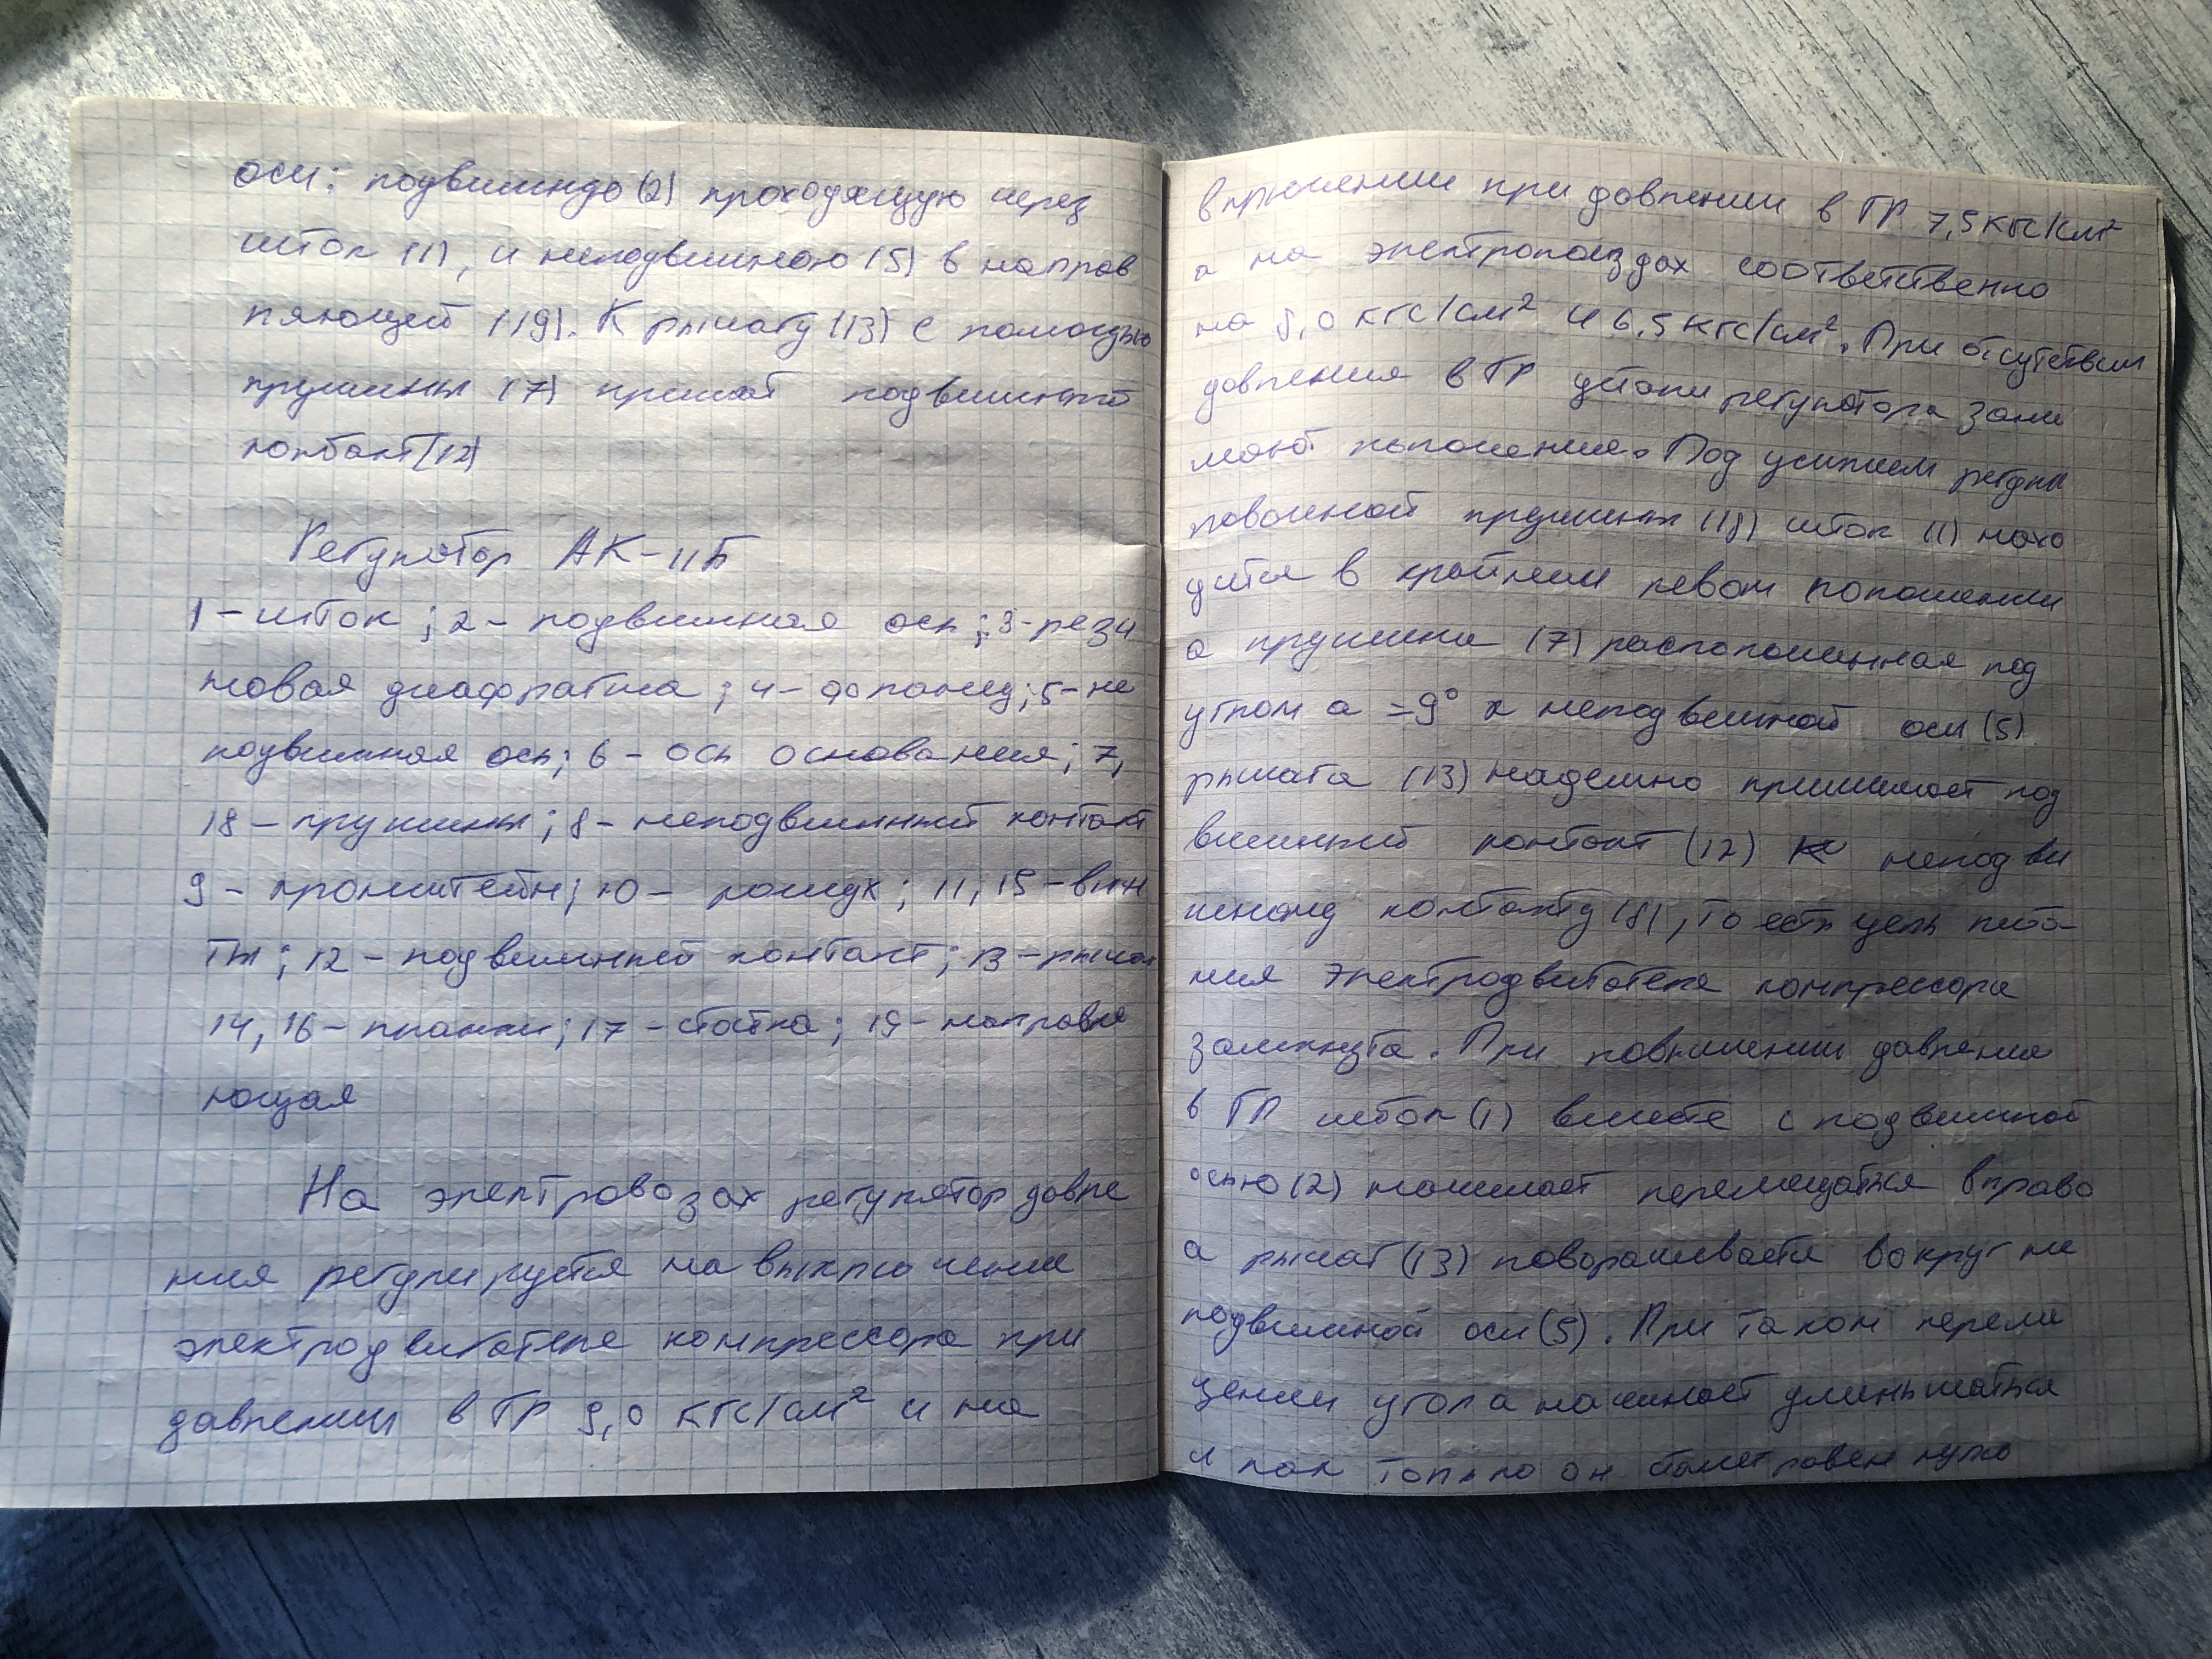 оси: подвиждо (2) проходящую через
шток (1), и неподвижною (5) в направ
ляющей (19). К рычагу (13) с помощью
пружины (7) прижат подвижный
контакт (12)
Регулятор АК-11Б
1 – шток; 2 – подвижная ось; 3 - рези
новая диафрагма; 4 - фланец; 5 - не
подвижная ось; 6 – ось основания; 7,
18 – пружины; 8 – неподвижный контакт
9 – кронштейн; 10 – кожух; 11, 15 – вин
ты; 12 – подвижный контакт; 13 – рычаг
14, 16 – планки; 17 – стойка; 19 – направля
ющая
На электровозах регулятор давле
ния регулируется на выключение
электродвигателя компрессора при
давлении в ГР 9,0 кгс/см² и на
включении при давлении в ГР 7,5 кгс/см²
а на электропоездах соответственно
на 8,0 кгс/см² и 6,5 кгс/см². При отсутствии
давления в ГР детали регулятора зани
мают положения. Под усилием регули
ровочной пружины (18) шток (1) нахо
дится в крайнем левом положении
а пружина (7) расположенная под
углом а = 9° к неподвижной оси (5)
рычага (13) надежно прижимает под
вижный контакт (12) к неподви
жному контакту (8), то есть цепь пита-
ния электродвигателя компрессора
замкнута. При повышении давления
в ГР шток (1) вместе с подвижной
осью (2) начинает перемещаться вправо
а рычаг (13) поворачивается вокруг не
подвижной оси (5). При таком переме
щении угол а начинает уменьшаться
и как только он станет равен нулю